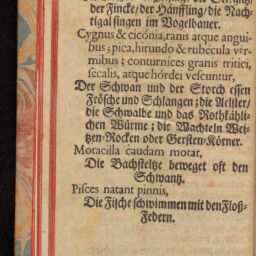 der Fincke/ der Hänffling/ die Nach-
tigal singen im Vogelbauer.
Cygnus & cicónia, ranis atque angui-
bus; pica, hirundo & rubecula ver-
mibus; conturnices granis tritici,
secalis, atque hórdei vescuntur,
Der Schwan und der Storch essen
Frösche und Schlangen; die Aelster/
die Schwalbe und das Rothkähli-
chen Würme; die Wachteln Wei-
tzen-Rocken oder Gersten-Körner.
Motacilla caudam motat,
Die Bachsteltze beweget oft den
Schwantz.
Pisces natant pinnis,
Die Fische schwimmen mit den Floß-
Federn.